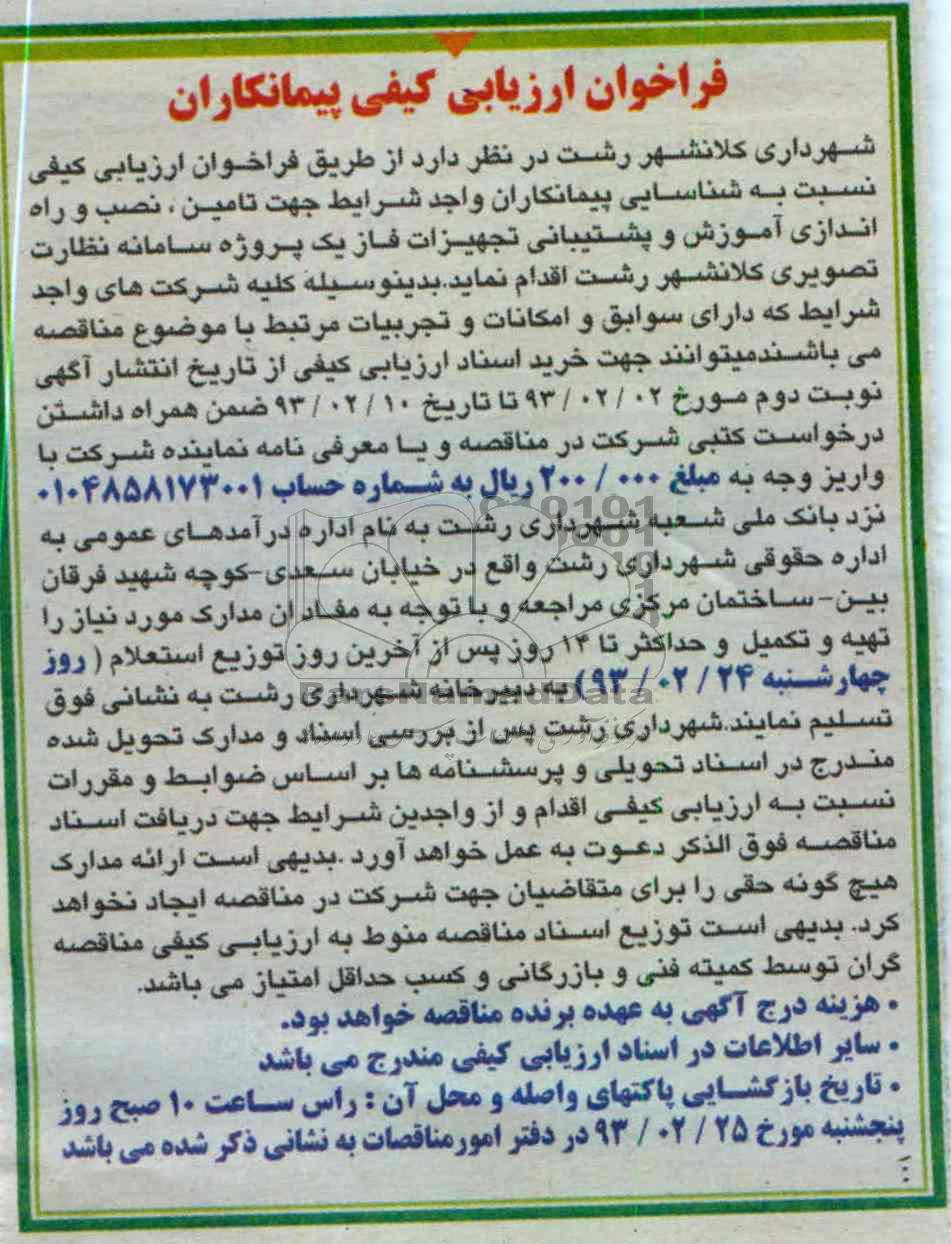 فراخوان ارزیابی کیفی پیمانکاران
شهرداری کلانشهر رشت در نظر دارد از طریق فراخوان ارزیابی کیفی
نسبت به شناسایی پیمانکاران واجد شرایط جهت تامین ، نصب و راه
اندازی آموزش و پشتیبانی تجهیزات فاز یک پروژه سامانه نظارت
تصویری کلانشهر رشت اقدام نماید.بدینوسیله کلیه شرکت های واجد
شرایط که دارای سوابق و امکانات و تجربیات مرتبط با موضوع مناقصه
می باشندمیتوانند جهت خرید اسناد ارزیابی کیفی از تاریخ انتشار آگهی
نوبت دوم مورخ ۹۳/۰۲/۰۲ تا تاریخ ۹۳/۰۲/۱۰ ضمن همراه داشتن
درخواست کتبی شرکت در مناقصه و یا معرفی نامه نماینده شرکت با
واریز وجه به مبلغ ۲۰۰/۰۰۰ ریال به شماره حساب ۰۱۰۴۸۵۸۱۷۳۰۰۱
نزد بانک ملی شعبه شهرداری رشت به نام اداره درآمدهای عمومی به
اداره حقوقی شهرداری رشت واقع در خیابان سعدی-کوچه شهید فرقان
بین- ساختمان مرکزی مراجعه و با توجه به مفاد ان مدارک مورد نیاز را
تهیه و تکمیل و حداکثر تا ۱۴ روز پس از آخرین روز توزیع استعلام ( روز
چهارشنبه ۹۳/۰۲/۲۴) به دبیرخانه شهرداری رشت به نشانی فوق
تسلیم نمایند.شهرداری رشت پس از بررسی اسناد و مدارک تحویل شده
مندرج در اسناد تحویلی و پرسشنامه ها بر اساس ضوابط و مقررات
نسبت به ارزیابی کیفی اقدام و از واجدین شرایط جهت دریافت اسناد
مناقصه فوق الذکر دعوت به عمل خواهد آورد .بدیهی است ارائه مدارک
هیچ گونه حقی را برای متقاضیان جهت شرکت در مناقصه ایجاد نخواهد
کرد. بدیهی است توزیع اسناد مناقصه منوط به ارزیابی کیفی مناقصه
گران توسط کمیته فنی و بازرگانی و کسب حداقل امتیاز می باشد.
• هزینه درج آگهی به عهده برنده مناقصه خواهد بود.
• سایر اطلاعات در اسناد ارزیابی کیفی مندرج می باشد
• تاریخ بازگشایی پاکتهای واصله و محل آن : راس ساعت ۱۰ صبح روز
پنجشنبه مورخ ۹۳/۰۲/۲۵ در دفتر امورمناقصات به نشانی ذکر شده می باشد
۱۰۰